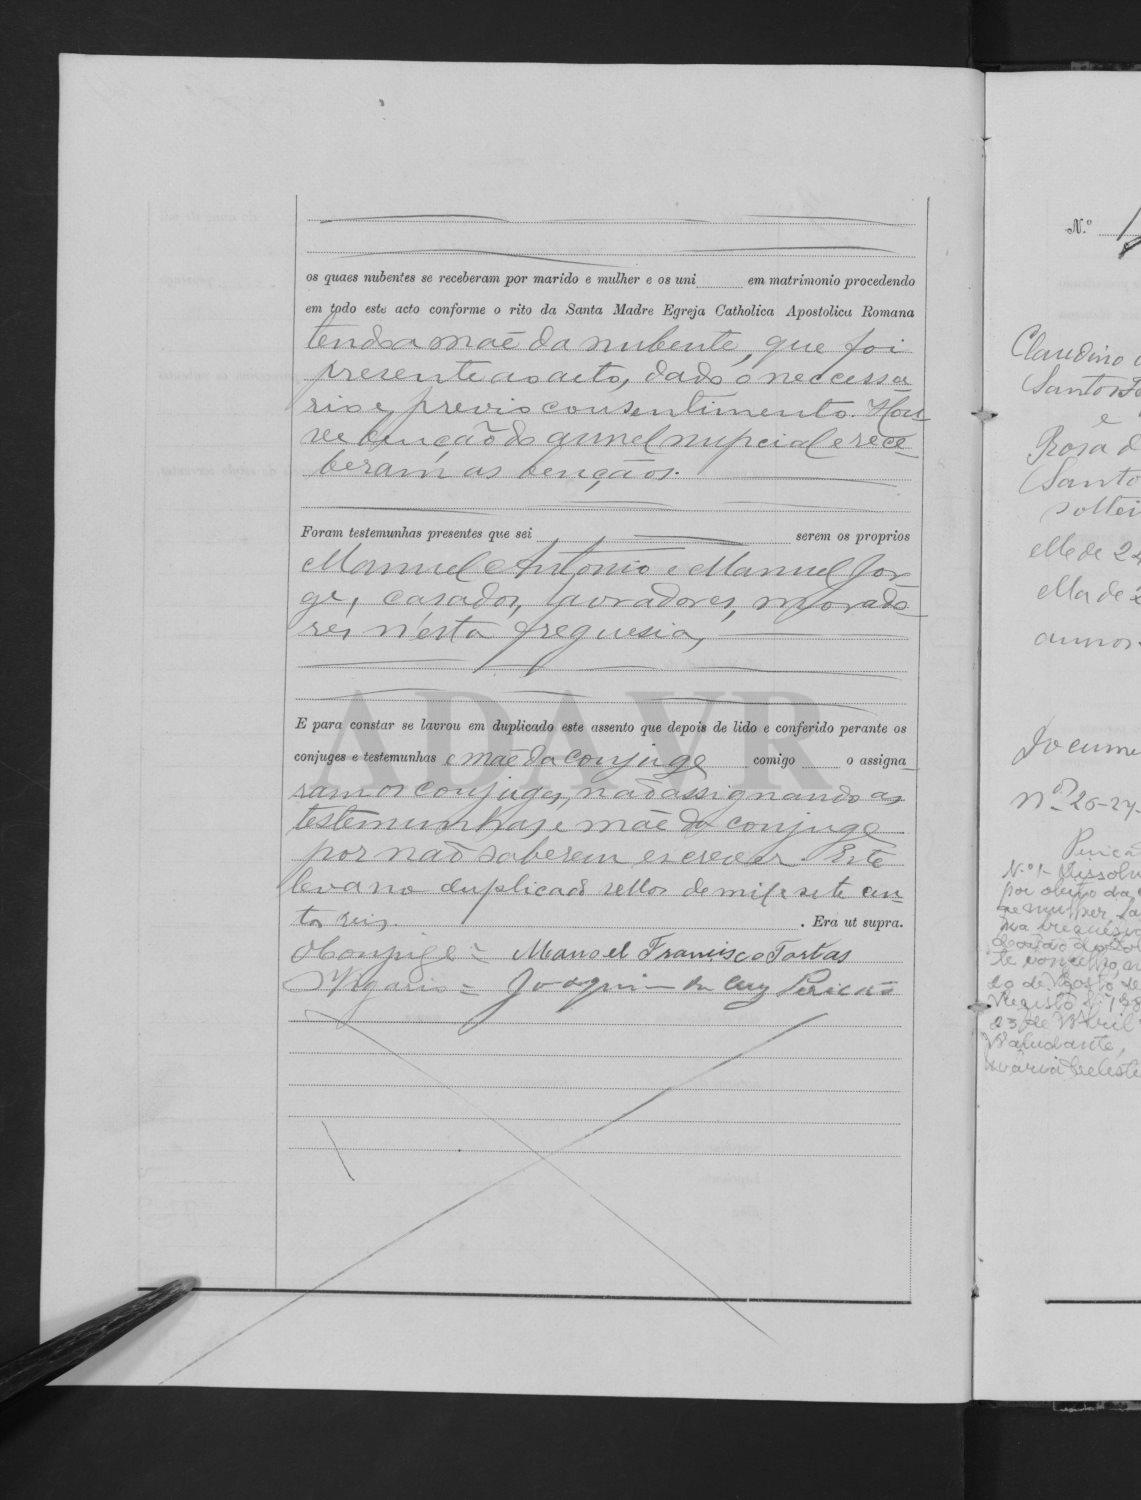 os quaes nubentes se receberam por marido e mulher e os uni em matrimonio procedendo
em todo este acto conforme o rito da Santa Madre Egreja Catholica Apostolica Romana
tendo a mãe da nubente, que foi
presente ao acto, dado o neccessa
rio e previo consentimento. Hou
ve benção do annel nupcial e rece
beram as bençãos.
Foram testemunhas presentes que sei serem os proprios
Manuel Antonio e Manuel Jor
ge, casados, lavradores, morado
res n'esta freguesia,
ADAVR
E para constar se lavrou em duplicado este assento que depois de lido e conferido perante os
conjuges e testemunhas e mãe da conjuge comigo o assigna
ram os conjuges, não assignando as
testemunhas e mãe da conjuge
por não saberem escrever. Este
leva no duplicado sellos de mil e sete cen
tos reis. Era ut supra.
O conjuge = Manoel Francisco Tortas
O Vigario = Joaquim da Cruz Pericão
N.º
Claudino
Santos
e
Rosa d
Santo
soltei
elle de 24
ella de 2
annos.
Docume
Nos 26-27-
Pericão
N.º 1- Dissolv
por obito da
de mulher,
te concelho,
do de
Registo
23 de Abril
Ajudante,
Maria Celeste